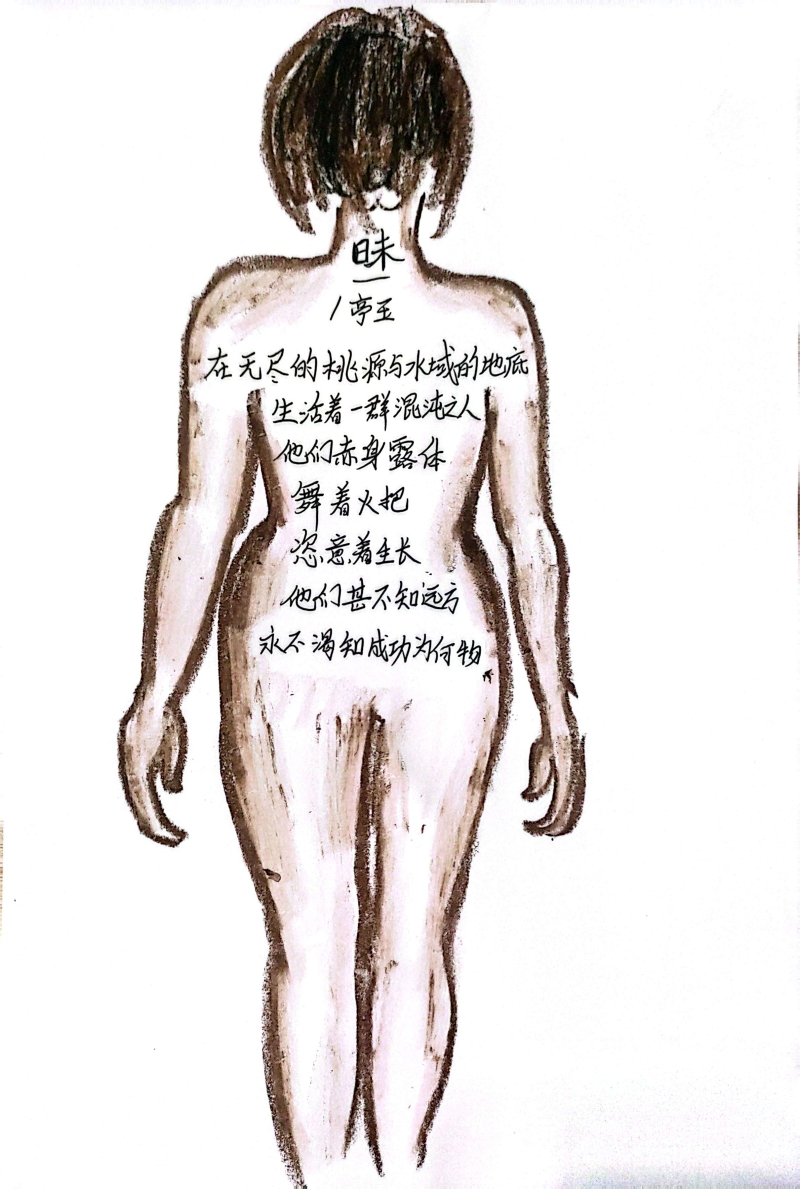 昧
/亭玉
在无尽的桃源与水域的地底
生活着一群混沌之人
他们赤身露体
舞着火把
恣意着生长
他们甚不知远方
永不渴知成功为何物